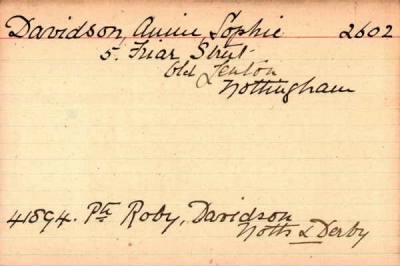 Davidson, Annie, Sophie 2602
5. Friar Street
Old Lenton
Nottingham
41894. Pte Roby, Davidson
Notts & Derby